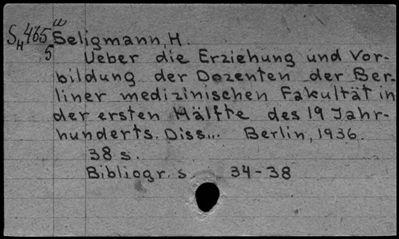 S 465 Seligmann, H.
H 5 Ueber die Erziehung und Vor-
bildung der Dozenten der Ber-
liner medizinischen Fakultät in
der ersten Hälfte des 19 Jahr-
hunderts. Diss... Berlin, 1936.
38 s.
Bibliogr. s 34-38